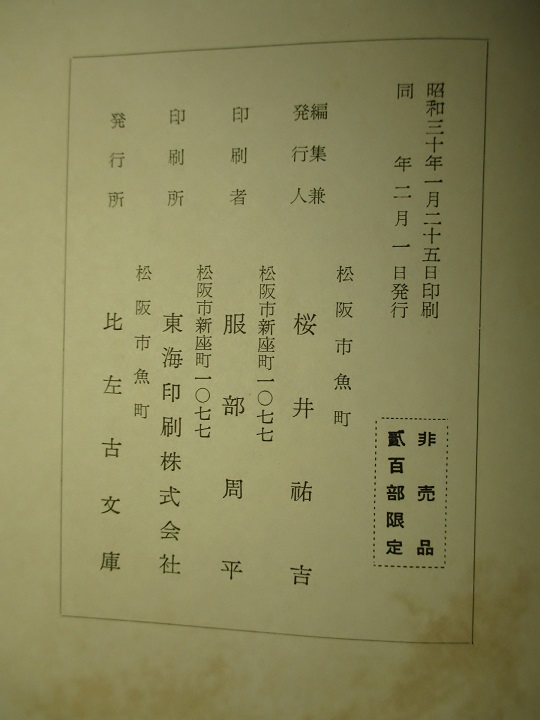 昭和三十年一月二十五日印刷
同年二月一日発行
非売品
貳百部限定
松阪市魚町
編集兼
発行人
桜井祐吉
松阪市新座町一〇七七
印刷者
服部周平
松阪市新座町一〇七七
印刷所
東海印刷株式会社
松阪市魚町
発行所
比左古文庫